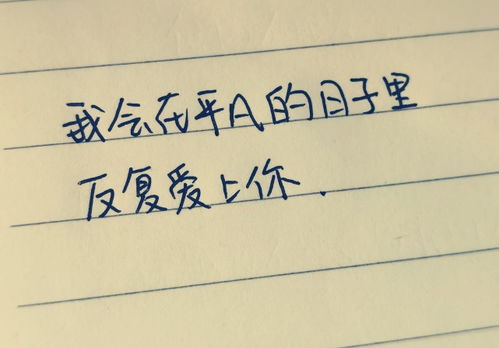 我会在平A的日子里
反复爱上你.